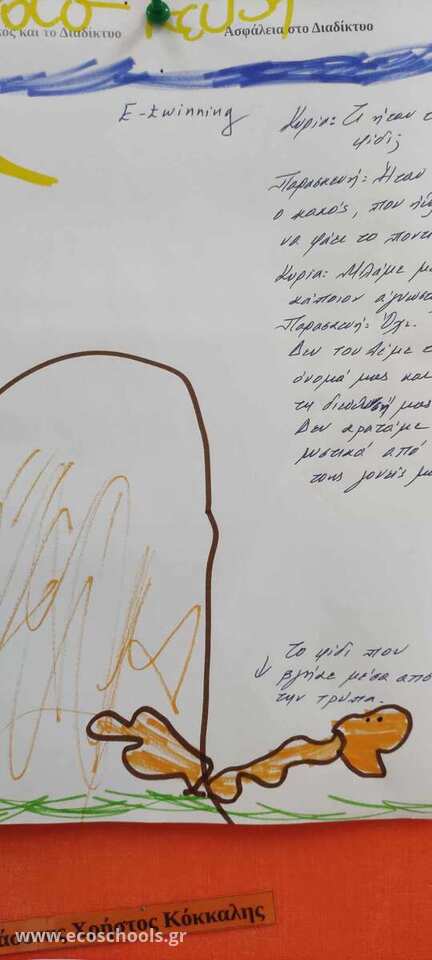 κος και το Διαδίκτυο
Ασφάλεια στο Διαδίκτυο
E-twinning
Κυρία: Τι ήταν τ
φίδι;
Παρασκευή: Ήταν
ο κακός, που ήρ
να φάει το ποντί
Κυρία: Μιλάμε μ
κάποιον άγνωστ
Παρασκευή: Όχι.
Δεν του λέμε τ
όνομά μας και
τη διεύθυνσή μας
Δεν κρατάμε
μυστικά από
τους γονείς μα
το φίδι που
βγήκε μέσα από
την τρύπα.
Χρήστος Κόκκαλης
www.ecoschools.gr